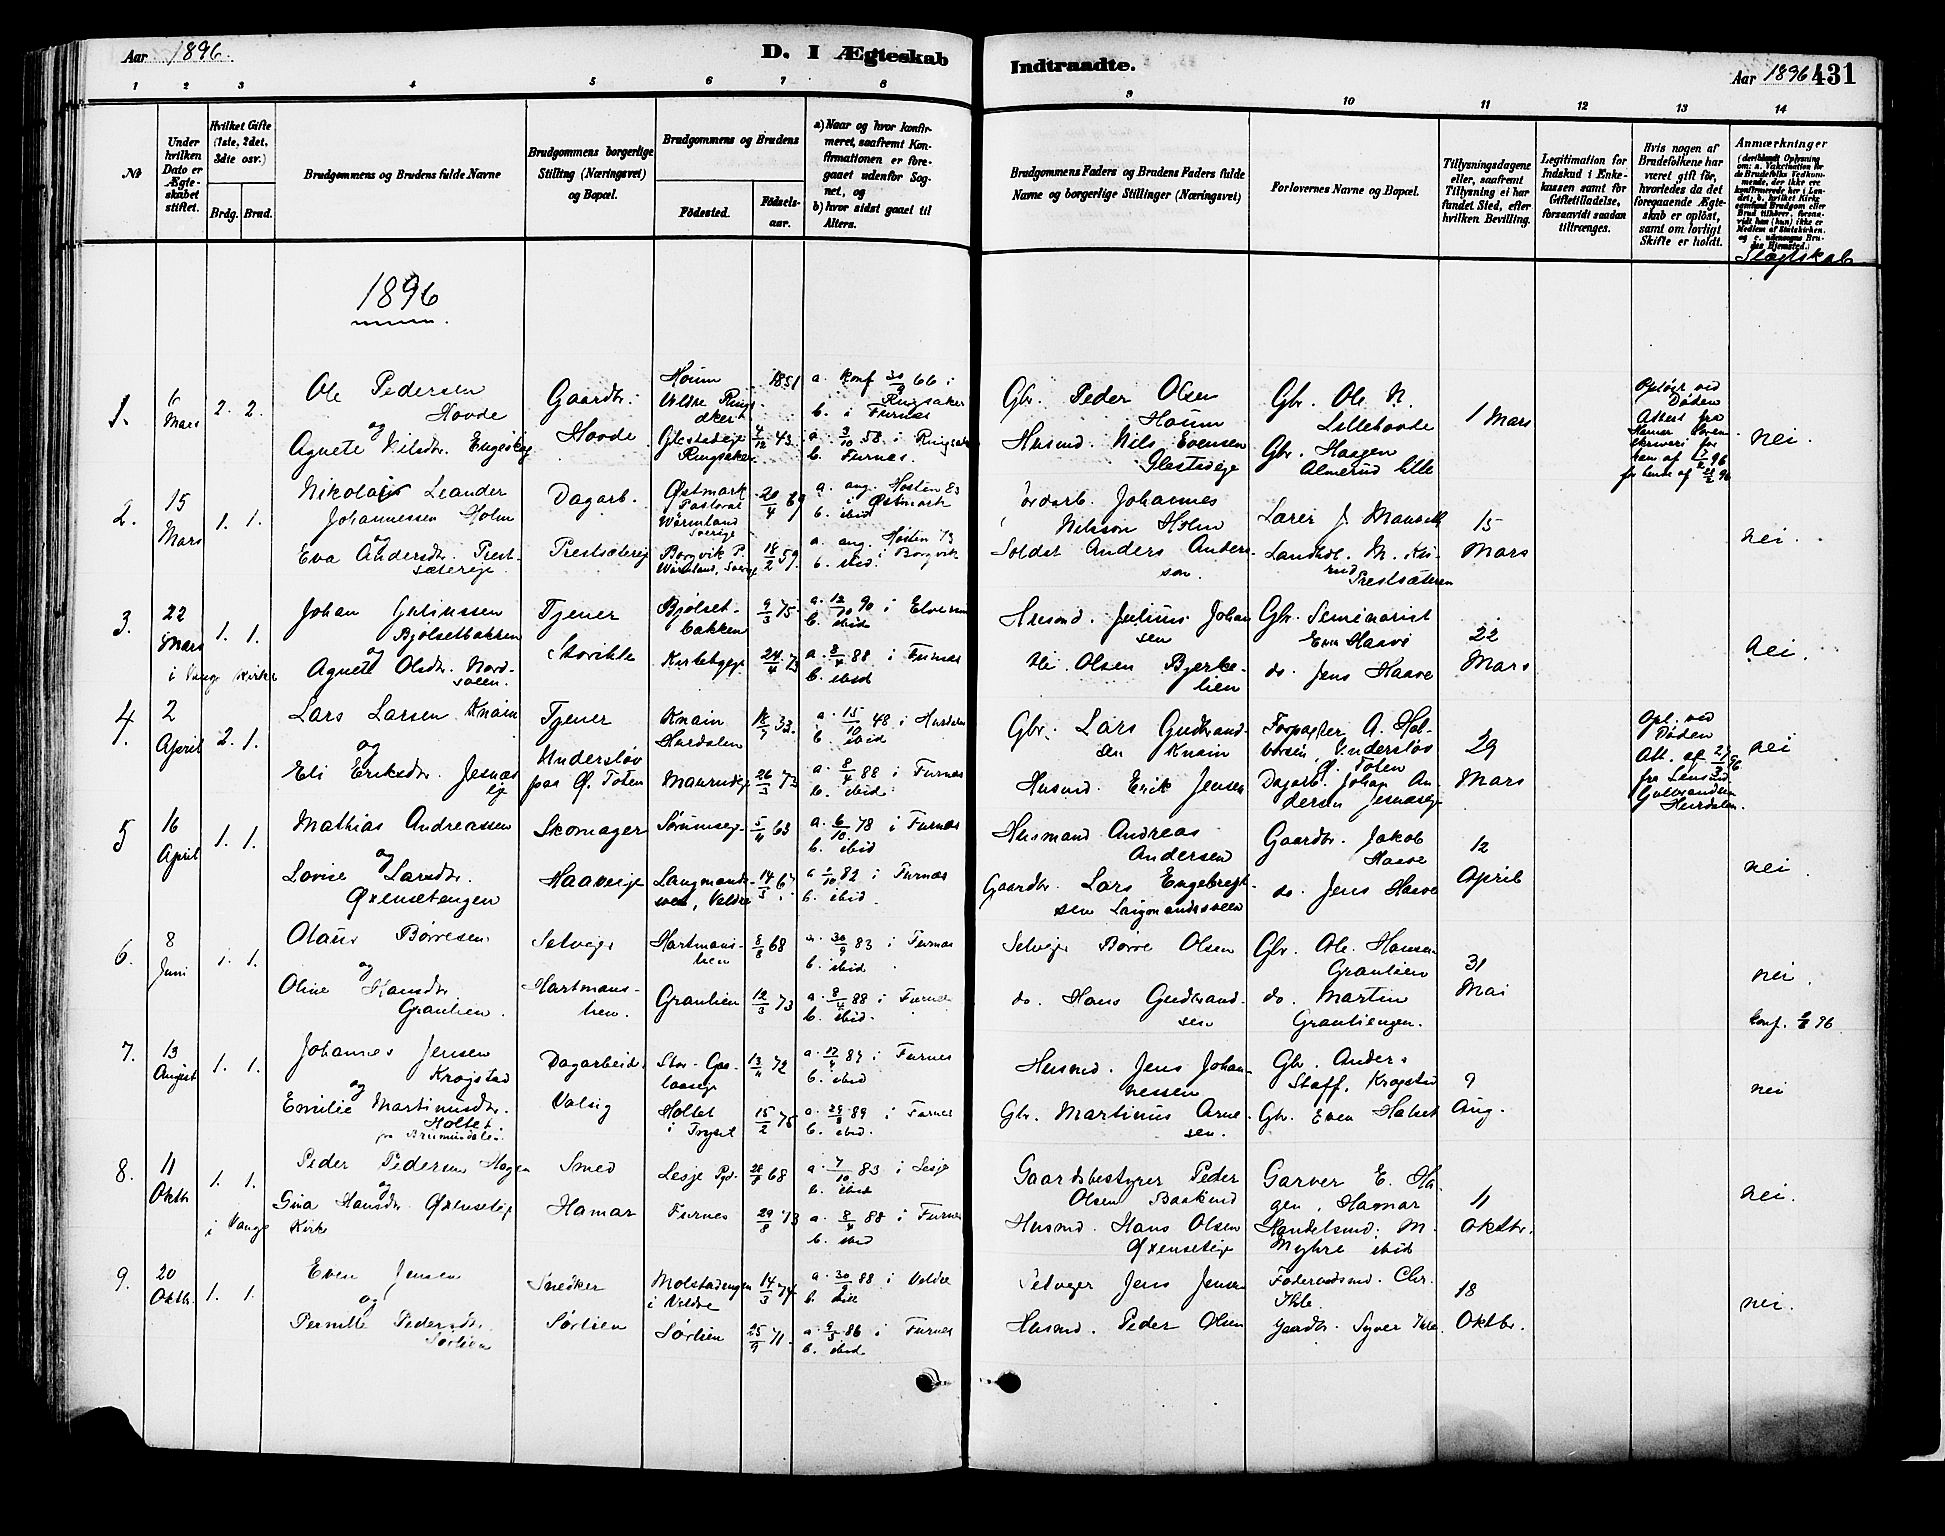 Aar 1896.
D. I Ægteskab
Indtraadte.
Aar 1896 431
1 2 3 4 5 6 7 8 9 10 11 12 13 14
No
Under hvilken Dato er Ægteskabet stiftet.
Hvilket Gifte (1ste, 2det, 3die osv.)
Brdg. Brud.
Brudgommens og Brudens fulde Navne
Brudgommens borgerlige Stilling (Næringsvei) og Bopæl.
Brudgommens og Brudens
Födested. Födselsaar.
a) Naar og hvor konfirmeret, saafremt Konfirmationen er foregaaet udenfor Sognet, og
b) hvor sidst gaaet til Alters.
Brudgommens Faders og Brudens Faders fulde Navne og borgerlige Stillinger (Næringsvei)
Forlovernes Navne og Bopæl.
Tillysningsdagene eller, saafremt Tillysning ei har fundet Sted, efter hvilken Bevilling.
Legitimation for Indskud i Enkekassen samt for Giftetilladelse, forsaavidt saadan tiltrænges.
Hvis nogen af Brudefolkene har været gift för, hvorledes da det foregaaende Ægteskab er oplöst, samt om lovligt Skifte er holdt.
Anmærkninger
Slægtskab
1896
1. 6 Mars 2. 2.
Ole Pedersen Hovde
og
Agnete Nilsdr. Engeskog
Gaardbr. Hovde
Houm Veldre Ringsaker 1851
Glestadeie Ringsaker 4/12 43
a. konf 30/9 66 i Ringsaker
b. i Furnæs
a. 3/10 58 i Ringsaker
b. Furnes.
Gbr. Peder Olsen Houm
Husmd. Nils Evensen Glestadeie
Gbr. Ole N. Lillehovde
Gbr. Haagen Almerud lille
1 Mars
Opløst ved Døden
nei.
2. 15 Mars 1. 1.
Nikolai Leander Johannessen Holm
og
Eva Andersdr. Prestsæterige
Dagarb.
Prestsæterig
Østmark Pastorat Wärmland Sverige 20/4 69
Borgvik P. Wärmland, Sverige 18/2 59.
a. ang. Høsten 83 i Østmark
b. ibid
a. ang. Høsten 73 i Borgvik
b. ibid.
Johannes Nilsson Holm
Soldat Anders Andersson.
Lærer J. Mansett
Prestsæteren
15 Mars
nei.
3. 22 Mars i Vangs Kirke 1. 1.
Johan Juliussen Bjølsetbakken
og
Agnete Olsdr. Nordsveen.
Tjener
Bjølsetbakken 9/3 75
Kirkebyeie 24/4 73
a. 12/10 90 i Elverum
b. ibid
a. 8/4 88 i Furnæs
b. ibid
Husmd. Julius Johansen
Olsen Bjerkelien
Gbr. Seminarist Even Haave
do. Jens Haave
22 Mars
nei.
4. 2 April 2. 1.
Lars Larsen Knain
og
Eli Eriksdr. Jesnæseie
Tjener Undersløv paa Ø. Toten
Knain Hurdalen 18/7 33.
26/3 73
a. 15/10 48 i Hurdalen
b. ibid
a. 8/4 88 i Furnæs
b. ibid
Gbr. Lars Gudbrandsen Knain
Husmd. Erik Jensen
Forpagter A. Halvorsen, Undersløv Ø. Toten
Dagarb. Johan Andersen Jesnæseie
29 Mars
Opl. ved Døden
nei
5 16 April 1. 1.
Mathias Andreassen
og
Lovise Larsdtr. Øxensetengen
Skomager Haaveige
Sørumseie 5/11 63
Langmandsveen, Veldre 14/3 67
a. 6/10 78 i Furnæs
b. ibid
a 1/10 82 i Furnæs
b. ibid.
Husmand Andreas Andersen
Gaardbr. Lars Engebregtsen Langmandsveen
Gaardbr. Jakob Haave
do. Jens Haave
12 April
nei.
6. 8 Juni 1. 1.
Olaus Børresen
og
Oline Hansdtr. Granlien.
Selveier Hartmanshen.
Hartmanshen 8/8 68
Granlien 12/3 73
a. 30/9 83 i Furnæs
b. ibid
a. 8/4 88 i Furnæs
b. ibid.
Selveier Børre Olsen
do. Hans Gudbrandsen
Gbr. Ole Hansen Granlien
do. Martin Granliengen.
31 Mai
nei.
7. 13 August 1. 1.
Johannes Jensen Krogstad
og
Emilie Martinusdtr. Holtet.
Dagarbeid. Valsig
13/11 72
Holtet i Trysil 15/2 75
a. 17/4 87 i Furnes
b. ibid.
a. 29/9 89 i Furnes
b. ibid.
Husmd. Jens Johannessen
Gbr. Martinus Arnesen.
Gbr. Anders Staff, Krogstad
Gbr. Even Halset
9 Aug.
konf. 96
nei
8. 11 Oktbr i Vangs Kirke 1. 1.
Peder Pedersen Hagen
og
Gina Hansdr. Øxenseteie
Smed Hamar
Lesje 68
Furnes 29/8 73
a. 7/10 83 i Lesje
b. ibid
a. 8/4 88 i Furnes
b. ibid
Gaardsbestyrer Peder Olsen Baakind
Husmd. Hans Olsen Øxenseteie
Garver E. Hagen, Hamar
Handelsmd. M. Myhre ibid
11 Oktbr.
nei.
9. 20 Oktbr. 1. 1.
Even Jensen
og
Pernille Pedersdtr. Sørlien
Snedker Sørlien
Molstadengen i Veldre 14/3 74
Sørlien 25/9 71.
a. 30/9 88 i Veldre
b. ibid
a. 9/5 86 i Furnes
b. ibid
Selveier Jens Jensen
Husmd. Peder Olsen
Føderaadsmd. Chr. Ihle.
Gaardbr. Syver Ihle.
18 Oktbr.
nei.